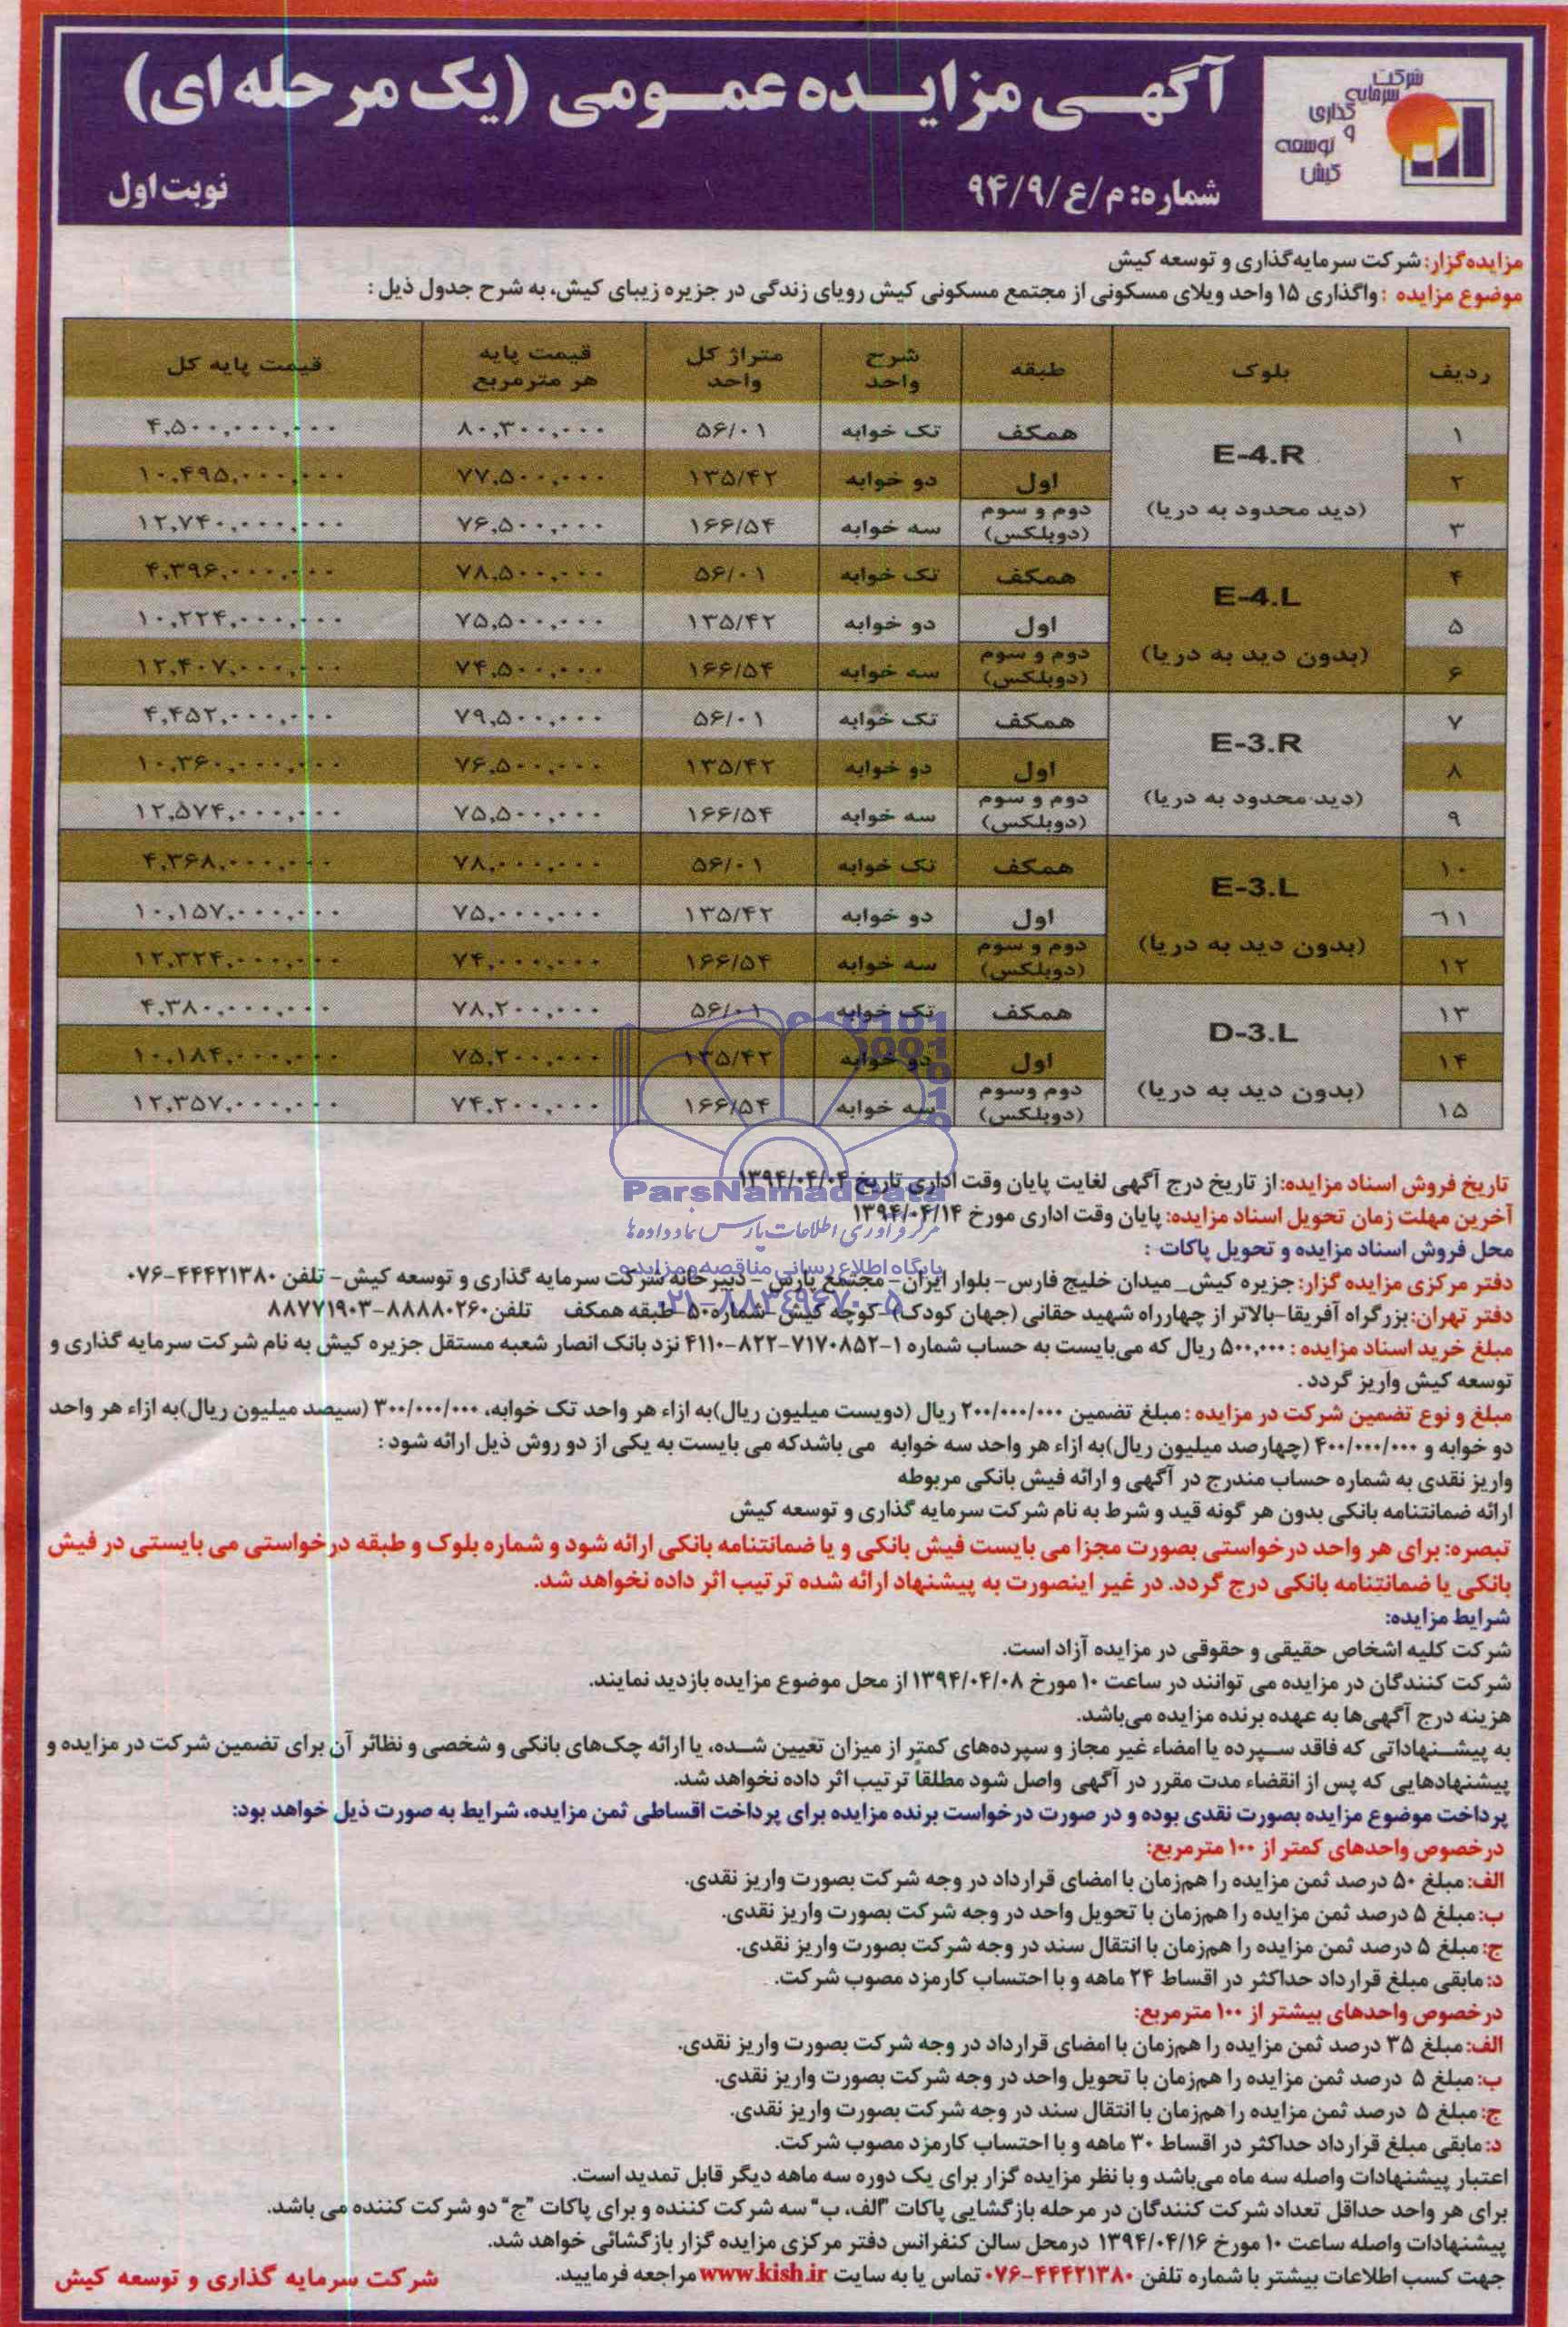 آگهی مزایده عمومی (یک مرحله ای)
شرکت
سرمایه
گذاری
و
توسعه
کیش
شماره: م/ع/۹۴/۹
نوبت اول
مزایده‌گزار: شرکت سرمایه‌گذاری و توسعه کیش
موضوع مزایده : واگذاری ۱۵ واحد ویلای مسکونی از مجتمع مسکونی کیش رویای زندگی در جزیره زیبای کیش، به شرح جدول ذیل :
ردیف بلوک طبقه شرح واحد متراژ کل واحد قیمت پایه هر مترمربع قیمت پایه کل
E-4.R
(دید محدود به دریا)
۱ همکف تک خوابه ۵۶/۰۱ ۸۰,۳۰۰,۰۰۰ ۴,۵۰۰,۰۰۰,۰۰۰
۲ اول دو خوابه ۱۳۵/۴۲ ۷۷,۵۰۰,۰۰۰ ۱۰,۴۹۵,۰۰۰,۰۰۰
۳ دوم و سوم (دوبلکس) سه خوابه ۱۶۶/۵۴ ۷۶,۵۰۰,۰۰۰ ۱۲,۷۴۰,۰۰۰,۰۰۰
E-4.L
(بدون دید به دریا)
۴ همکف تک خوابه ۵۶/۰۱ ۷۸,۵۰۰,۰۰۰ ۴,۳۹۶,۰۰۰,۰۰۰
۵ اول دو خوابه ۱۳۵/۴۲ ۷۵,۵۰۰,۰۰۰ ۱۰,۲۲۴,۰۰۰,۰۰۰
۶ دوم و سوم (دوبلکس) سه خوابه ۱۶۶/۵۴ ۷۴,۵۰۰,۰۰۰ ۱۲,۴۰۷,۰۰۰,۰۰۰
E-3.R
(دید محدود به دریا)
۷ همکف تک خوابه ۵۶/۰۱ ۷۹,۵۰۰,۰۰۰ ۴,۴۵۲,۰۰۰,۰۰۰
۸ اول دو خوابه ۱۳۵/۴۲ ۷۶,۵۰۰,۰۰۰ ۱۰,۳۶۰,۰۰۰,۰۰۰
۹ دوم و سوم (دوبلکس) سه خوابه ۱۶۶/۵۴ ۷۵,۵۰۰,۰۰۰ ۱۲,۵۷۴,۰۰۰,۰۰۰
E-3.L
(بدون دید به دریا)
۱۰ همکف تک خوابه ۵۶/۰۱ ۷۸,۰۰۰,۰۰۰ ۴,۳۶۸,۰۰۰,۰۰۰
۱۱ اول دو خوابه ۱۳۵/۴۲ ۷۵,۰۰۰,۰۰۰ ۱۰,۱۵۷,۰۰۰,۰۰۰
۱۲ دوم و سوم (دوبلکس) سه خوابه ۱۶۶/۵۴ ۷۴,۰۰۰,۰۰۰ ۱۲,۳۲۴,۰۰۰,۰۰۰
D-3.L
(بدون دید به دریا)
۱۳ همکف تک خوابه ۵۶/۰۱ ۷۸,۲۰۰,۰۰۰ ۴,۳۸۰,۰۰۰,۰۰۰
۱۴ اول دو خوابه ۱۳۵/۴۲ ۷۵,۲۰۰,۰۰۰ ۱۰,۱۸۴,۰۰۰,۰۰۰
۱۵ دوم وسوم (دوبلکس) سه خوابه ۱۶۶/۵۴ ۷۴,۲۰۰,۰۰۰ ۱۲,۳۵۷,۰۰۰,۰۰۰
تاریخ فروش اسناد مزایده: از تاریخ درج آگهی لغایت پایان وقت اداری تاریخ ۱۳۹۴/۰۴/۰۴
ParsNamadData
آخرین مهلت زمان تحویل اسناد مزایده: پایان وقت اداری مورخ ۱۳۹۴/۰۴/۱۴
مرکز فرآوری اطلاعات پارس نماد داده ها
محل فروش اسناد مزایده و تحویل پاکات :
پایگاه اطلاع رسانی مناقصه و مزایده
دفتر مرکزی مزایده گزار: جزیره کیش_ میدان خلیج فارس- بلوار ایران- مجتمع پارس - دبیرخانه شرکت سرمایه گذاری و توسعه کیش- تلفن ۴۴۴۲۱۳۸۰-۰۷۶
۰۲۱-۸۸۳۴۹۶۷۰-۵
دفتر تهران: بزرگراه آفریقا-بالاتر از چهارراه شهید حقانی (جهان کودک)- کوچه کیش- شماره۵۰- طبقه همکف تلفن۸۸۸۸۰۲۶۰-۸۸۷۷۱۹۰۳
مبلغ خرید اسناد مزایده : ۵۰۰,۰۰۰ ریال که می‌بایست به حساب شماره ۱-۷۱۷۰۸۵۲-۸۲۲-۴۱۱۰ نزد بانک انصار شعبه مستقل جزیره کیش به نام شرکت سرمایه گذاری و
توسعه کیش واریز گردد .
مبلغ و نوع تضمین شرکت در مزایده : مبلغ تضمین ۲۰۰/۰۰۰/۰۰۰ ریال (دویست میلیون ریال)به ازاء هر واحد تک خوابه، ۳۰۰/۰۰۰/۰۰۰ (سیصد میلیون ریال)به ازاء هر واحد
دو خوابه و ۴۰۰/۰۰۰/۰۰۰ (چهارصد میلیون ریال)به ازاء هر واحد سه خوابه می باشدکه می بایست به یکی از دو روش ذیل ارائه شود :
واریز نقدی به شماره حساب مندرج در آگهی و ارائه فیش بانکی مربوطه
ارائه ضمانتنامه بانکی بدون هر گونه قید و شرط به نام شرکت سرمایه گذاری و توسعه کیش
تبصره: برای هر واحد درخواستی بصورت مجزا می بایست فیش بانکی و یا ضمانتنامه بانکی ارائه شود و شماره بلوک و طبقه درخواستی می بایستی در فیش
بانکی یا ضمانتنامه بانکی درج گردد. در غیر اینصورت به پیشنهاد ارائه شده ترتیب اثر داده نخواهد شد.
شرایط مزایده:
شرکت کلیه اشخاص حقیقی و حقوقی در مزایده آزاد است.
شرکت کنندگان در مزایده می توانند در ساعت ۱۰ مورخ ۱۳۹۴/۰۴/۰۸ از محل موضوع مزایده بازدید نمایند.
هزینه درج آگهی‌ها به عهده برنده مزایده می‌باشد.
به پیشنهاداتی که فاقد سپرده یا امضاء غیر مجاز و سپرده‌های کمتر از میزان تعیین شده، یا ارائه چک‌های بانکی و شخصی و نظائر آن برای تضمین شرکت در مزایده و
پیشنهادهایی که پس از انقضاء مدت مقرر در آگهی واصل شود مطلقاً ترتیب اثر داده نخواهد شد.
پرداخت موضوع مزایده بصورت نقدی بوده و در صورت درخواست برنده مزایده برای پرداخت اقساطی ثمن مزایده، شرایط به صورت ذیل خواهد بود:
درخصوص واحدهای کمتر از ۱۰۰ مترمربع:
الف: مبلغ ۵۰ درصد ثمن مزایده را همزمان با امضای قرارداد در وجه شرکت بصورت واریز نقدی.
ب: مبلغ ۵ درصد ثمن مزایده را همزمان با تحویل واحد در وجه شرکت بصورت واریز نقدی.
ج: مبلغ ۵ درصد ثمن مزایده را همزمان با انتقال سند در وجه شرکت بصورت واریز نقدی.
د: مابقی مبلغ قرارداد حداکثر در اقساط ۲۴ ماهه و با احتساب کارمزد مصوب شرکت.
درخصوص واحدهای بیشتر از ۱۰۰ مترمربع:
الف: مبلغ ۳۵ درصد ثمن مزایده را همزمان با امضای قرارداد در وجه شرکت بصورت واریز نقدی.
ب: مبلغ ۵ درصد ثمن مزایده را همزمان با تحویل واحد در وجه شرکت بصورت واریز نقدی.
ج: مبلغ ۵ درصد ثمن مزایده را همزمان با انتقال سند در وجه شرکت بصورت واریز نقدی.
د: مابقی مبلغ قرارداد حداکثر در اقساط ۳۰ ماهه و با احتساب کارمزد مصوب شرکت.
اعتبار پیشنهادات واصله سه ماه می‌باشد و با نظر مزایده گزار برای یک دوره سه ماهه دیگر قابل تمدید است.
برای هر واحد حداقل تعداد شرکت کنندگان در مرحله بازگشایی پاکات "الف، ب" سه شرکت کننده و برای پاکات "ج" دو شرکت کننده می باشد.
پیشنهادات واصله ساعت ۱۰ مورخ ۱۳۹۴/۰۴/۱۶ درمحل سالن کنفرانس دفتر مرکزی مزایده گزار بازگشائی خواهد شد.
جهت کسب اطلاعات بیشتر با شماره تلفن ۴۴۴۲۱۳۸۰-۰۷۶ تماس یا به سایت www.kish.ir مراجعه فرمایید.
شرکت سرمایه گذاری و توسعه کیش